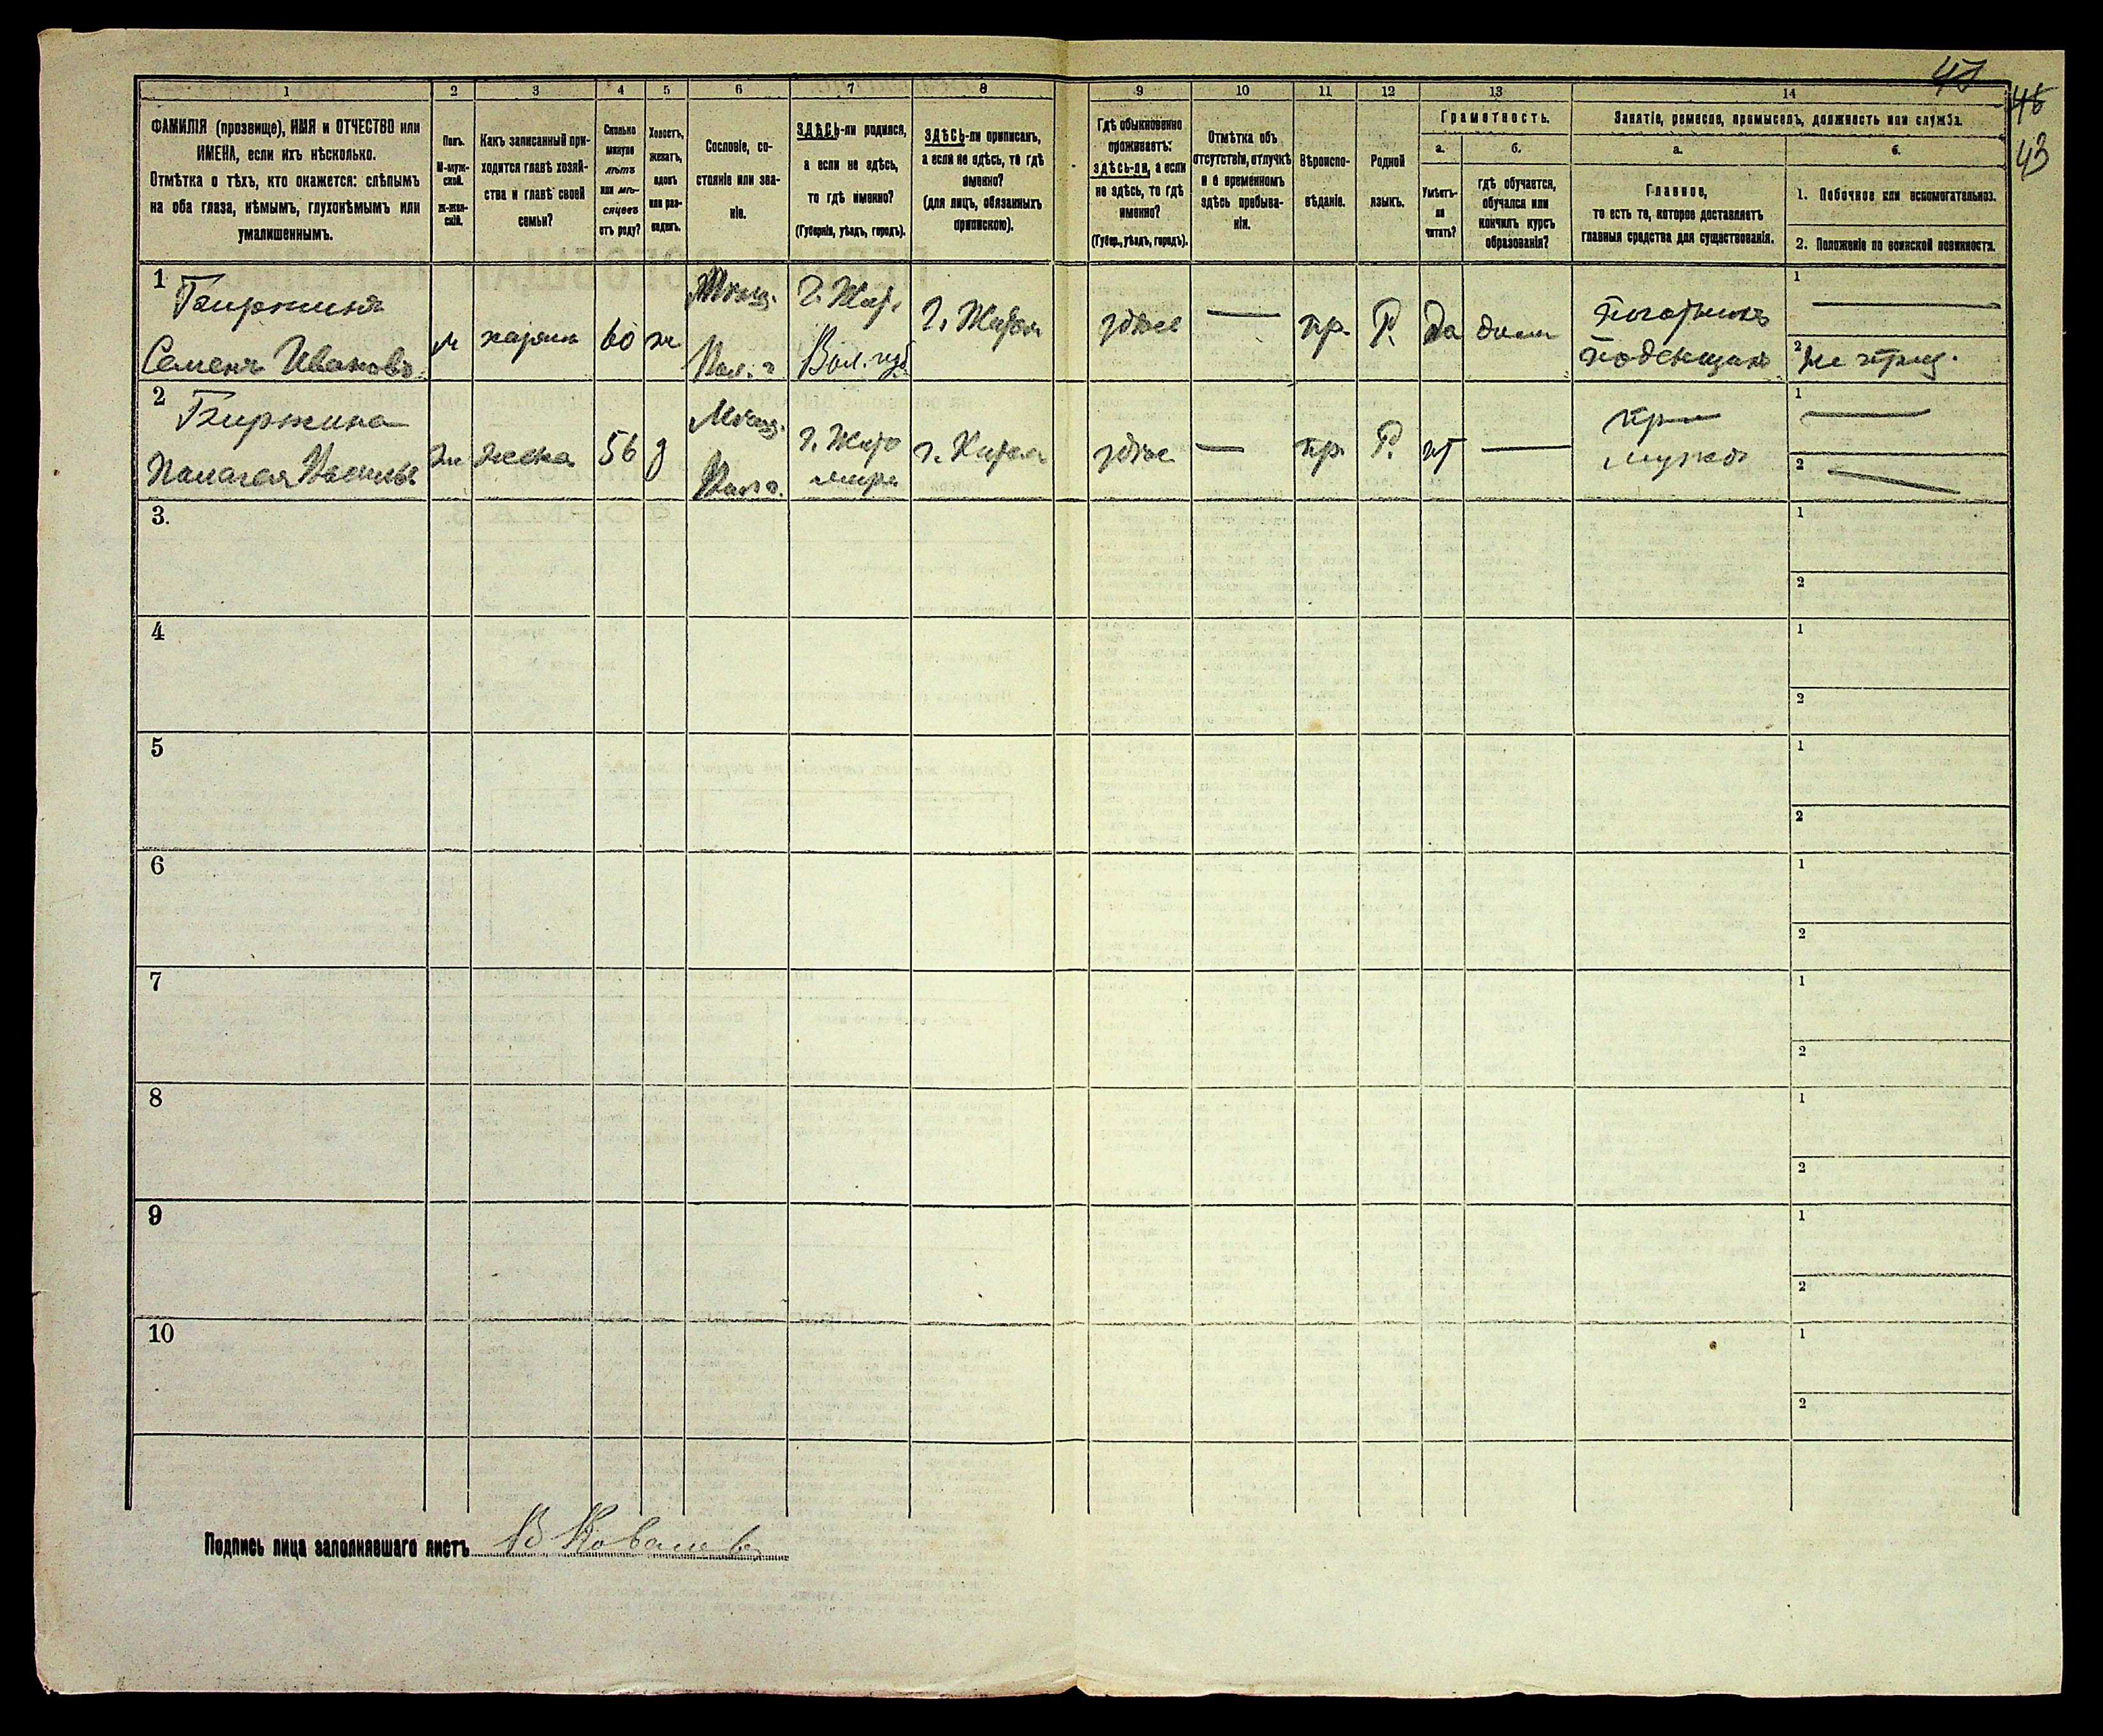 47
46
43
1
2
3
4
5
6
7
8
9
10
11
12
13
14
ФАМИЛІЯ (прозвище), ИМЯ и ОТЧЕСТВО или
ИМЕНА, если ихъ нѣсколько.
Отмѣтка о тѣхъ, кто окажется: слѣпымъ
на оба глаза, нѣмымъ, глухонѣмымъ или
умалишеннымъ.
Полъ.
М-муж-
ской.
Ж-жен-
скій.
Какъ записанный при-
ходится главѣ хозяй-
ства и главѣ своей
семьи?
Сколько
минуло
лѣтъ
или мѣ-
сяцевъ
отъ роду?
Холостъ,
женатъ,
вдовъ
или раз-
веденъ.
Сословіе, со-
стояніе или зва-
ніе.
ЗДѢСЬ-ли родился,
а если не здѣсь,
то гдѣ именно?
(Губернія, уѣздъ, городъ).
ЗДѢСЬ-ли приписанъ,
а если не здѣсь, то гдѣ
именно?
(для лицъ, обязанныхъ
припискою).
Гдѣ обыкновенно
проживаетъ:
здѣсь-ли, а если
не здѣсь, то гдѣ
именно?
(Губер., уѣздъ, городъ).
Отмѣтка объ
отсутствіи, отлучкѣ
и о временномъ
здѣсь пребыва-
ніи.
Вѣроиспо-
вѣданіе.
Родной
языкъ.
Грамотность.
а.
Умѣетъ-
ли
читать?
б.
гдѣ обучается,
обучался или
кончилъ курсъ
образованія?
Занятіе, ремесло, промыселъ, должность или служба.
а.
Главное,
то есть то, которое доставляетъ
главныя средства для существованія.
б.
1. Побочное или вспомогательное.
2. Положеніе по воинской повинности.
1
Семенъ Ивановъ
м
хозяин
60
ж
Мѣщ.
г. Жит.
Вол. губ.
г. Житом
здѣсь
—
пр.
Р.
да
дома
Поденщик
1 —
2 не
2
Васильев
Ж
жена
56
з
Мѣщ.
г. Жито
мир
г. Житом
здѣсь
—
пр.
Р.
нѣт
—
при
мужѣ
1 —
2 —
3.
1
2
4
1
2
5
1
2
6
1
2
7
1
2
8
1
2
9
1
2
10
1
2
Подпись лица заполнявшаго листъ В Ковалев